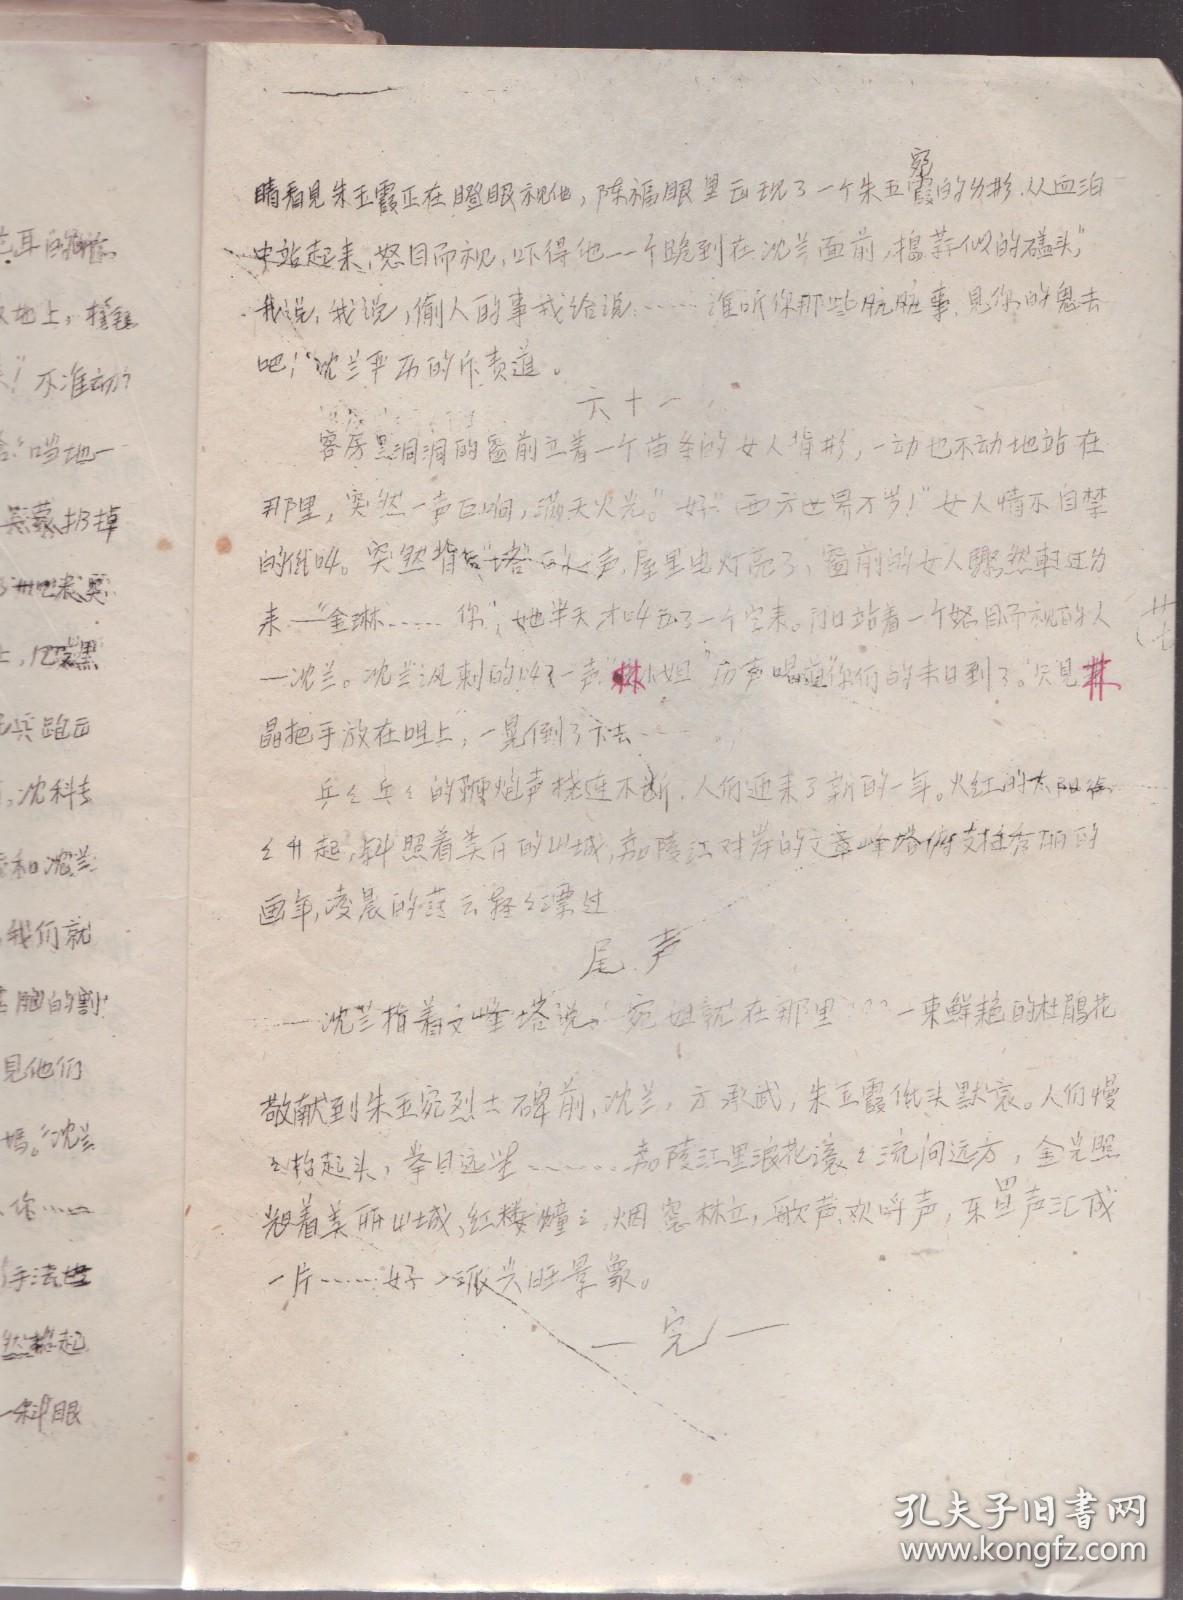 宛
睛看見朱玉霞正在瞪眼视他，陈福眼里出现了一个朱玉霞的身形，从血泊
中站起来，怒目而视，吓得他一个跪到在沈兰面前，捣蒜似的磕头，"
我说，我说，偷人的事我给说……谁听你那些肮脏事，見你的鬼去
吧！"沈兰严历的斥责道。
六十一
客房黑洞洞的窗前立着一个苗条的女人背影，一动也不动地站在
那里，突然一声巨响，满天火光。"好"西方世界万岁！"女人情不自禁
的低叫。突然背后"塔"的一声，屋里电灯亮了，窗前的女人骤然转过身
来—"金琳……你"，她半天才叫出了一个字来。门口站着一个怒目而视的人
—沈兰。沈兰讽刺的叫了一声"林小姐"厉声喝道"你们的末日到了。"只見林
晶把手放在咀上，一晃倒了下去……
乒々乓々的鞭炮声接连不断，人们迎来了新的一年。火红的太阳徐
々升起，斜照着美丽的山城，嘉陵江对岸的文峰塔
画年，凌晨的薄云轻々漂过
尾声
——沈兰指着文峰塔说。"宛姐就在那里 一束鲜艳的杜鹃花
敬献到朱玉宛烈士碑前，沈兰，方承武，朱玉霞低头默哀。人们慢
々抬起头，举目远望……嘉陵江里浪花滚々流向远方，金光照
着美丽山城，红楼幢々，烟窗林立，歌声，欢呼声，乐器声汇成
一片……好一派兴旺景象。
—完—
耳的
地上，
！不准动？
"哨地一
扔掉
黑
兵跑出
，沈科长
和沈兰
我们就
的割
見他们
吗。"沈兰
你……
手法
抬起
一斜眼
孔夫子旧书网
www.kongfz.com